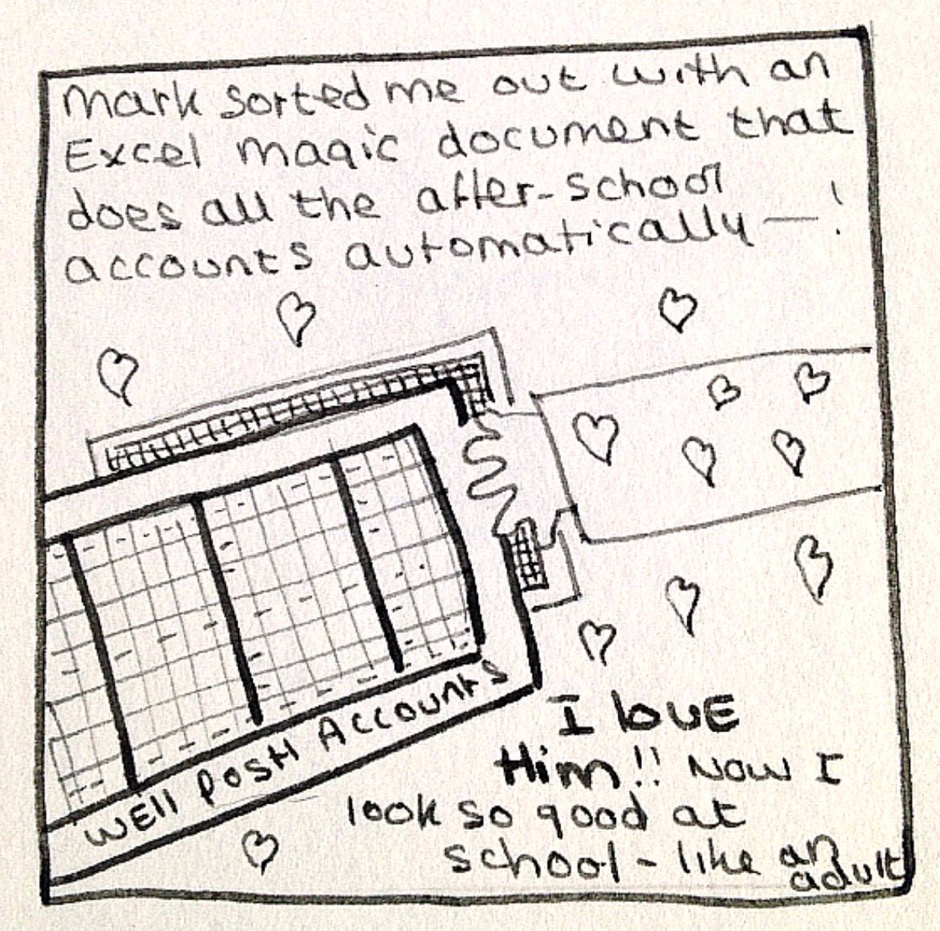 Mark sorted me out with an
Excel magic document that
does all the after-school
accounts automatically —!
WEll PosH AccounTs
I loVE
Him!! Now I
look so good at
school - like an
adult